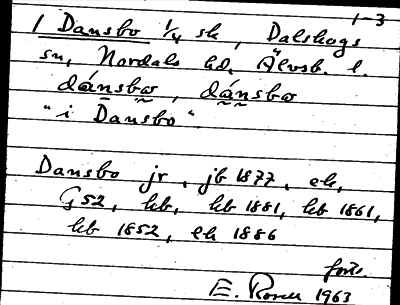 1-3
1 Dansbo 1/4 sk, Dalskogs
sn, Nordals hd, Älvsb. l.
dánsbo, dánsbo
"i Dansbo"
Dansbo jr, jb 1877, ek,
G52, hb, hb 1881, hb 1861,
hb 1852, ek 1886
forts.
E. 1963